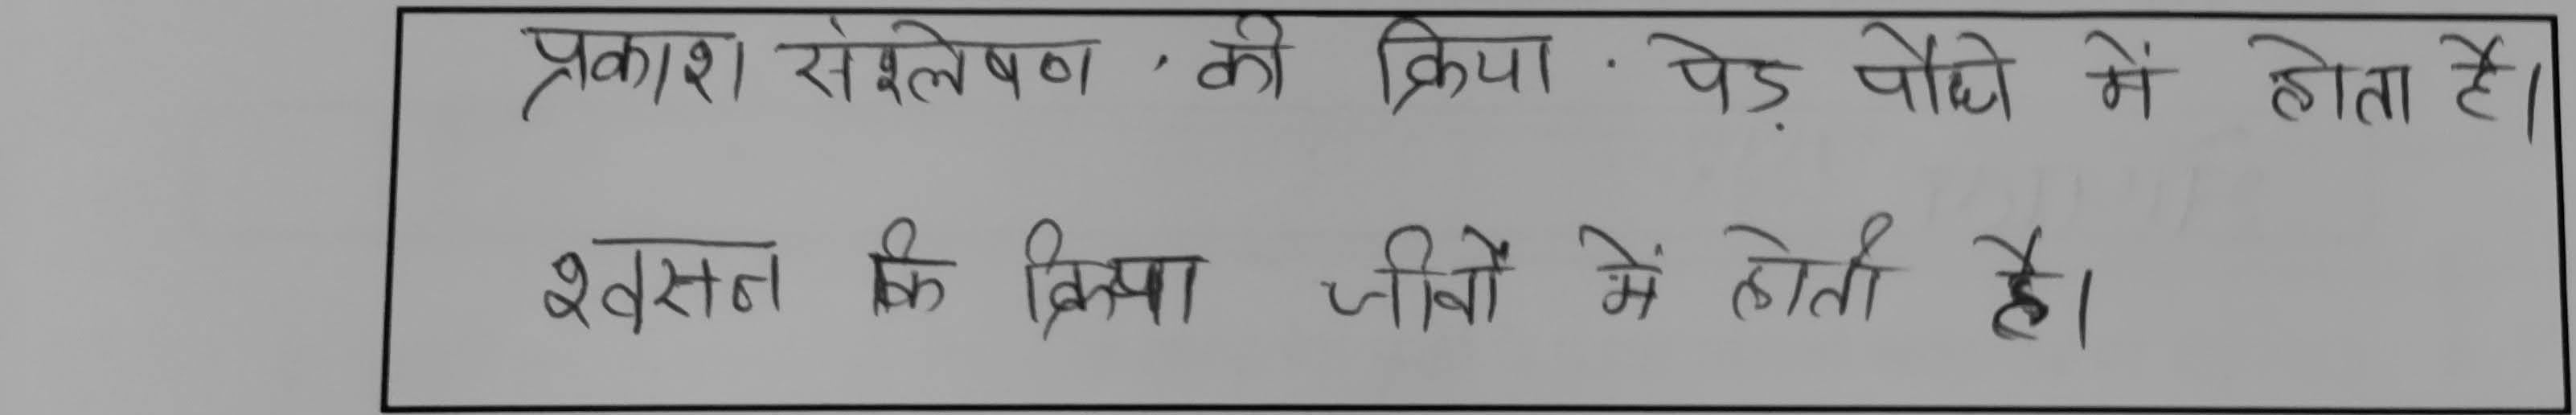 प्रकाश संश्लेषण की क्रिया पेड़ पौधो में होता है।
श्वसन कि क्रिया जीवों में होती है।